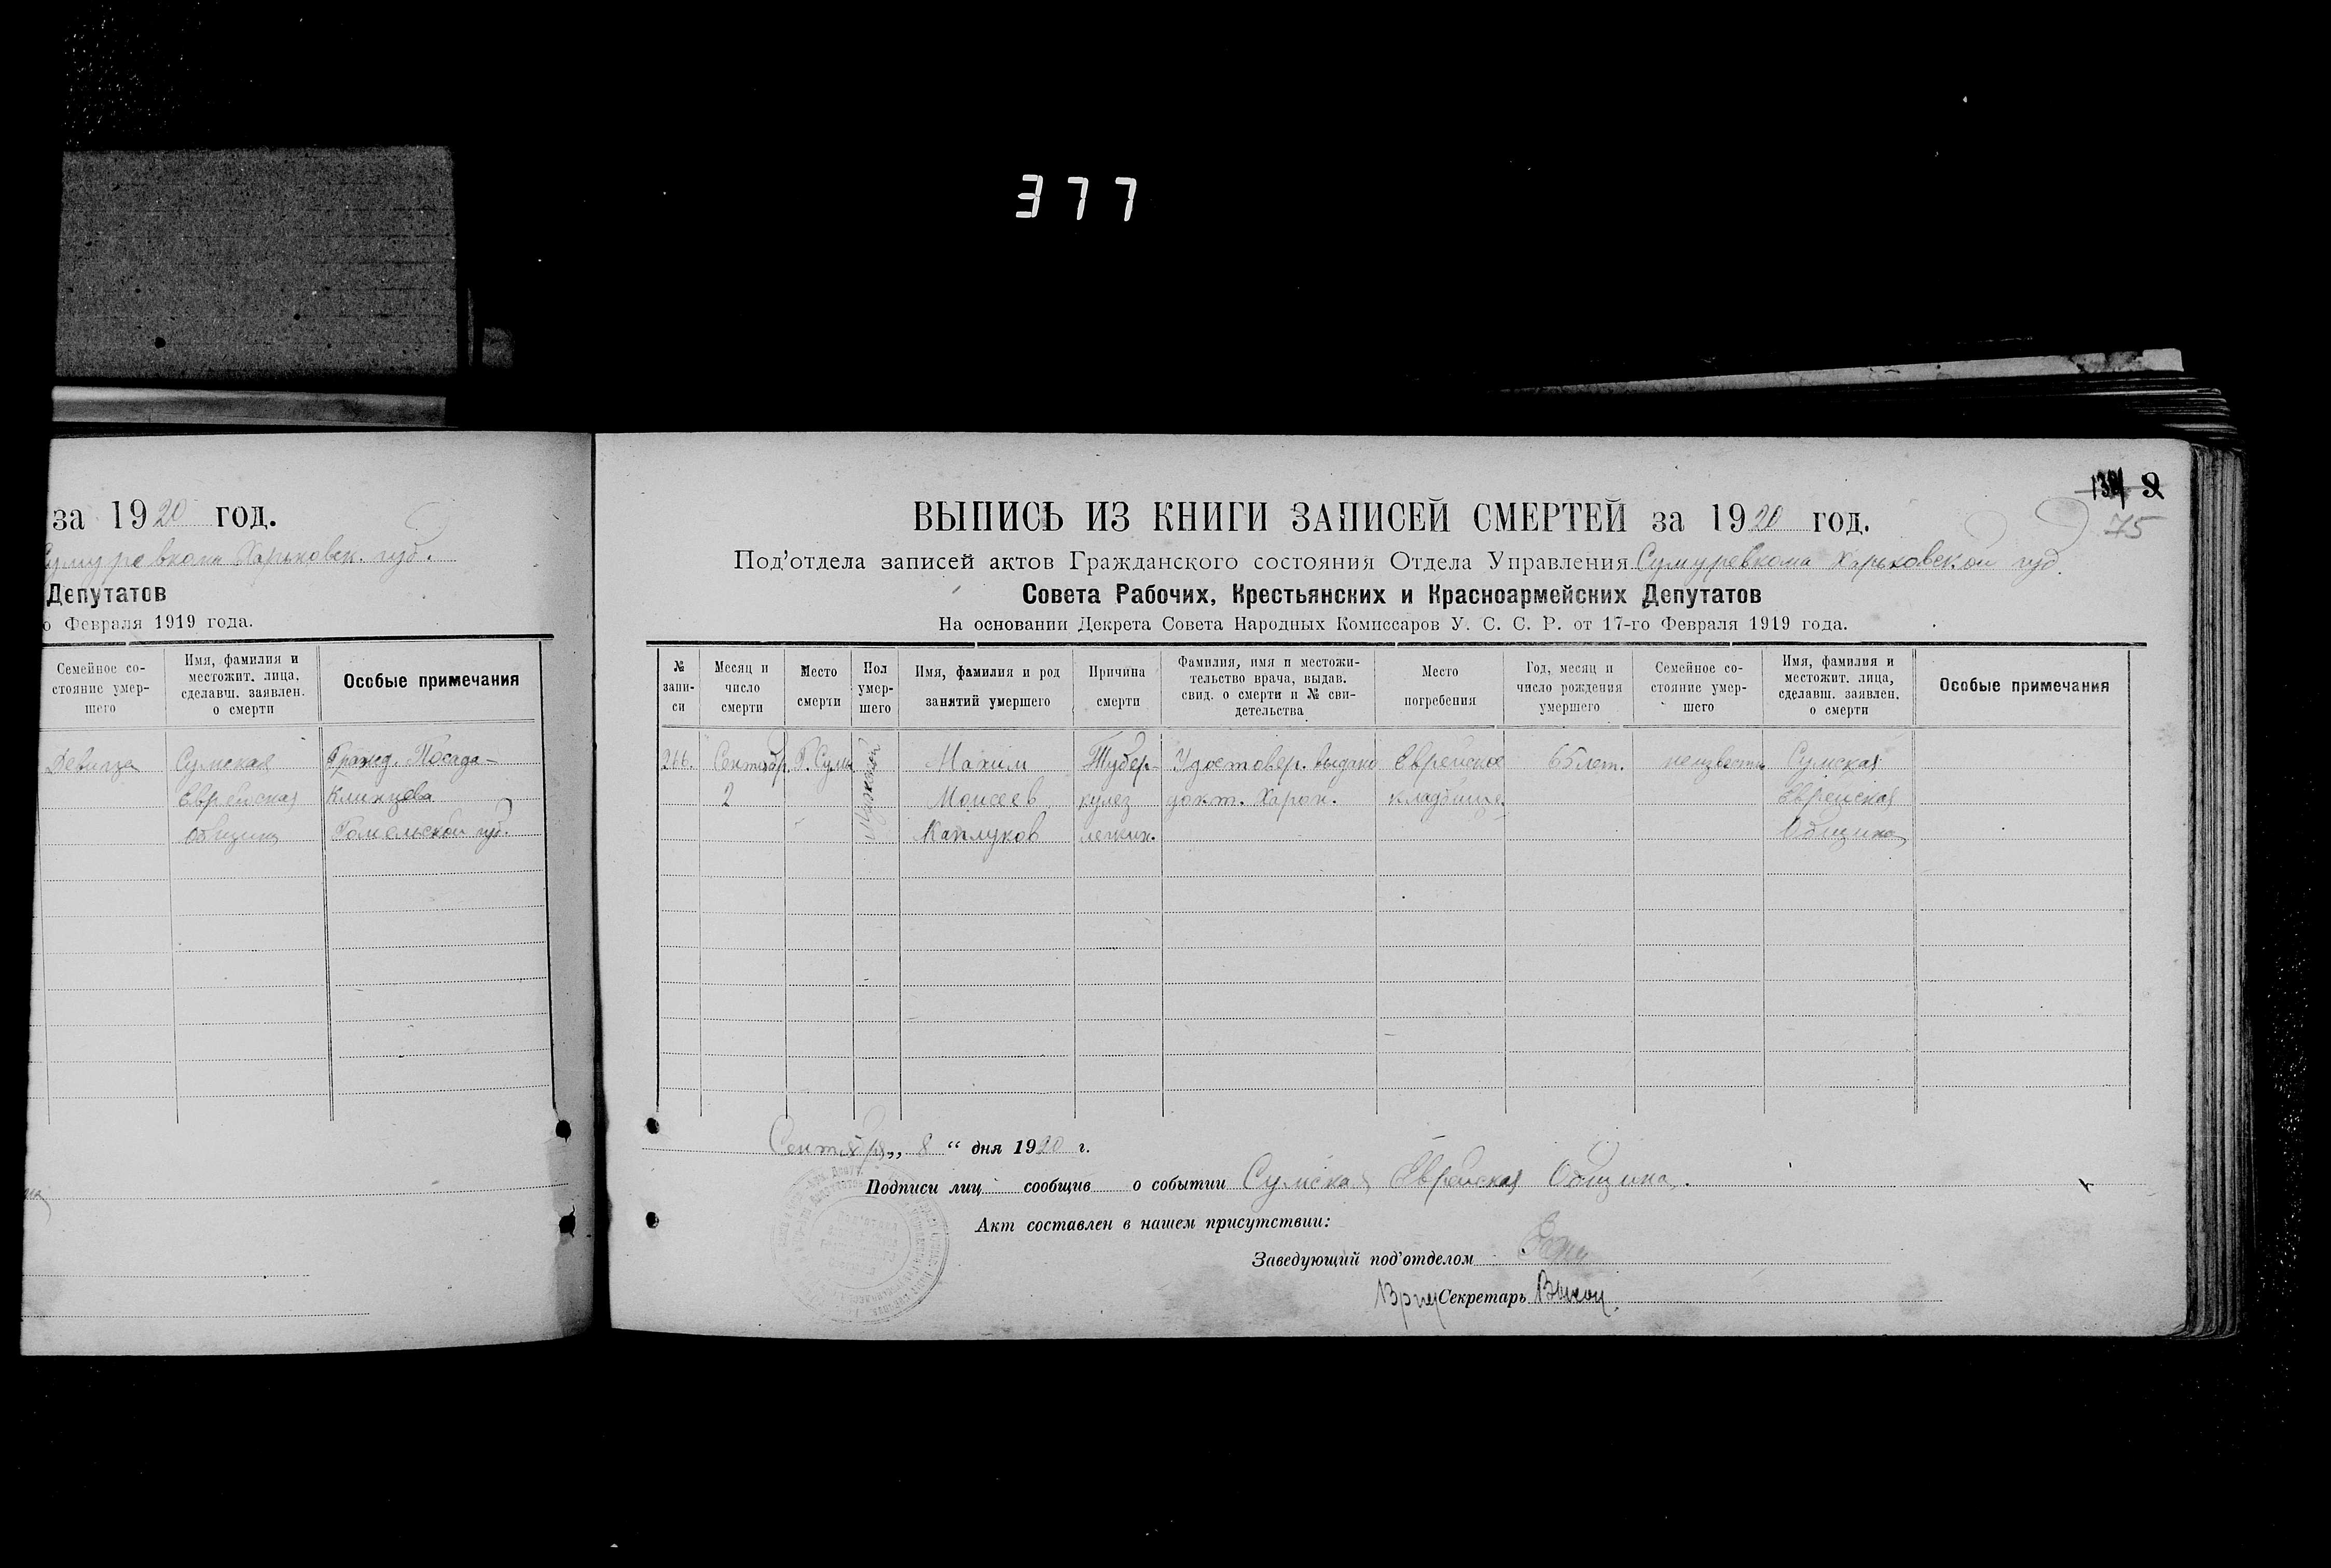 377
за 1920 год.
Сумуревкома Харьковск. губ.
Депутатов
о Февраля 1919 года.
Семейное со-
стояние умер-
шего
Имя, фамилия и
местожит. лица,
сделавш. заявлен.
о смерти
Особые примечания
Девица
Сумская
Еврейская
Община
Гражд. Посада
Клинцева
Гомельской губ.
9
75
ВЫПИСЬ ИЗ КНИГИ ЗАПИСЕЙ СМЕРТЕЙ за 1920 год.
Под'отдела записей актов Гражданского состояния Отдела Управления Сумуревкома Харьковской губ.
Совета Рабочих, Крестьянских и Красноармейских Депутатов
На основании Декрета Совета Народных Комиссаров У. С. С. Р. от 17-го Февраля 1919 года.
№
запи-
си
Месяц и
число
смерти
Место
смерти
Пол
умер-
шего
Имя, фамилия и род
занятий умершего
Причина
смерти
Фамилия, имя и местожи-
тельство врача, выдав.
свид. о смерти и № сви-
детельства
Место
погребения
Год, месяц и
число рождения
умершего
Семейное со-
стояние умер-
шего
Имя, фамилия и
местожит. лица,
сделавш. заявлен.
о смерти
Особые примечания
266.
Сентябр.
2
Г. Сумы
Мужской
Махим
Моисеев
Каплуков
Тубер-
кулез
легких.
Удостовер. выдано
докт. Харон.
Еврейское
кладбище.
65 лет.
неизвестн
Сумская
Еврейская
Община
Сентября „ 8 “ дня 1920 г.
Подписи лиц сообщив о событии Сумская Еврейская Община.
Акт составлен в нашем присутствии:
Заведующий под'отделом
Секретарь